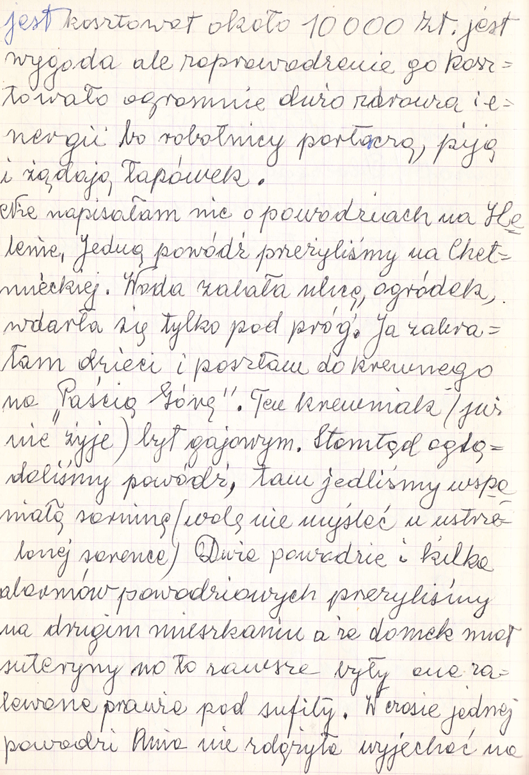 jest kosztował około 10 000 zł. jest
wygoda ale zaprowadzenie go kosz=
towało ogromnie dużo zdrowia i e=
nergii bo robotnicy partaczą, piją
i żądają łapówek.
Nie napisałam nic o powodziach na He
lenie, Jedną powódź przeżyliśmy na Cheł=
mieckiej. Woda zalała ulicę, ogródek,
wdarła się tylko pod próg. Ja zabra=
łam dzieci i poszłam do krewnego
na "Paścią Górę". Ten krewniak (już
nie żyje) był gajowym. Stamtąd oglą=
daliśmy powódź, tam jedliśmy wspa
niałą sarninę (wolę nie myśleć u ustrze
lonej sarence) Duże powodzie i kilka
alarmów powodziowych przeżyliśmy
na drugim mieszkaniu a że domek miał
suteryny no to zawsze były one za=
lewane prawie pod sufity. W czasie jednej
powodzi Ania nie zdążyła wyjechać na